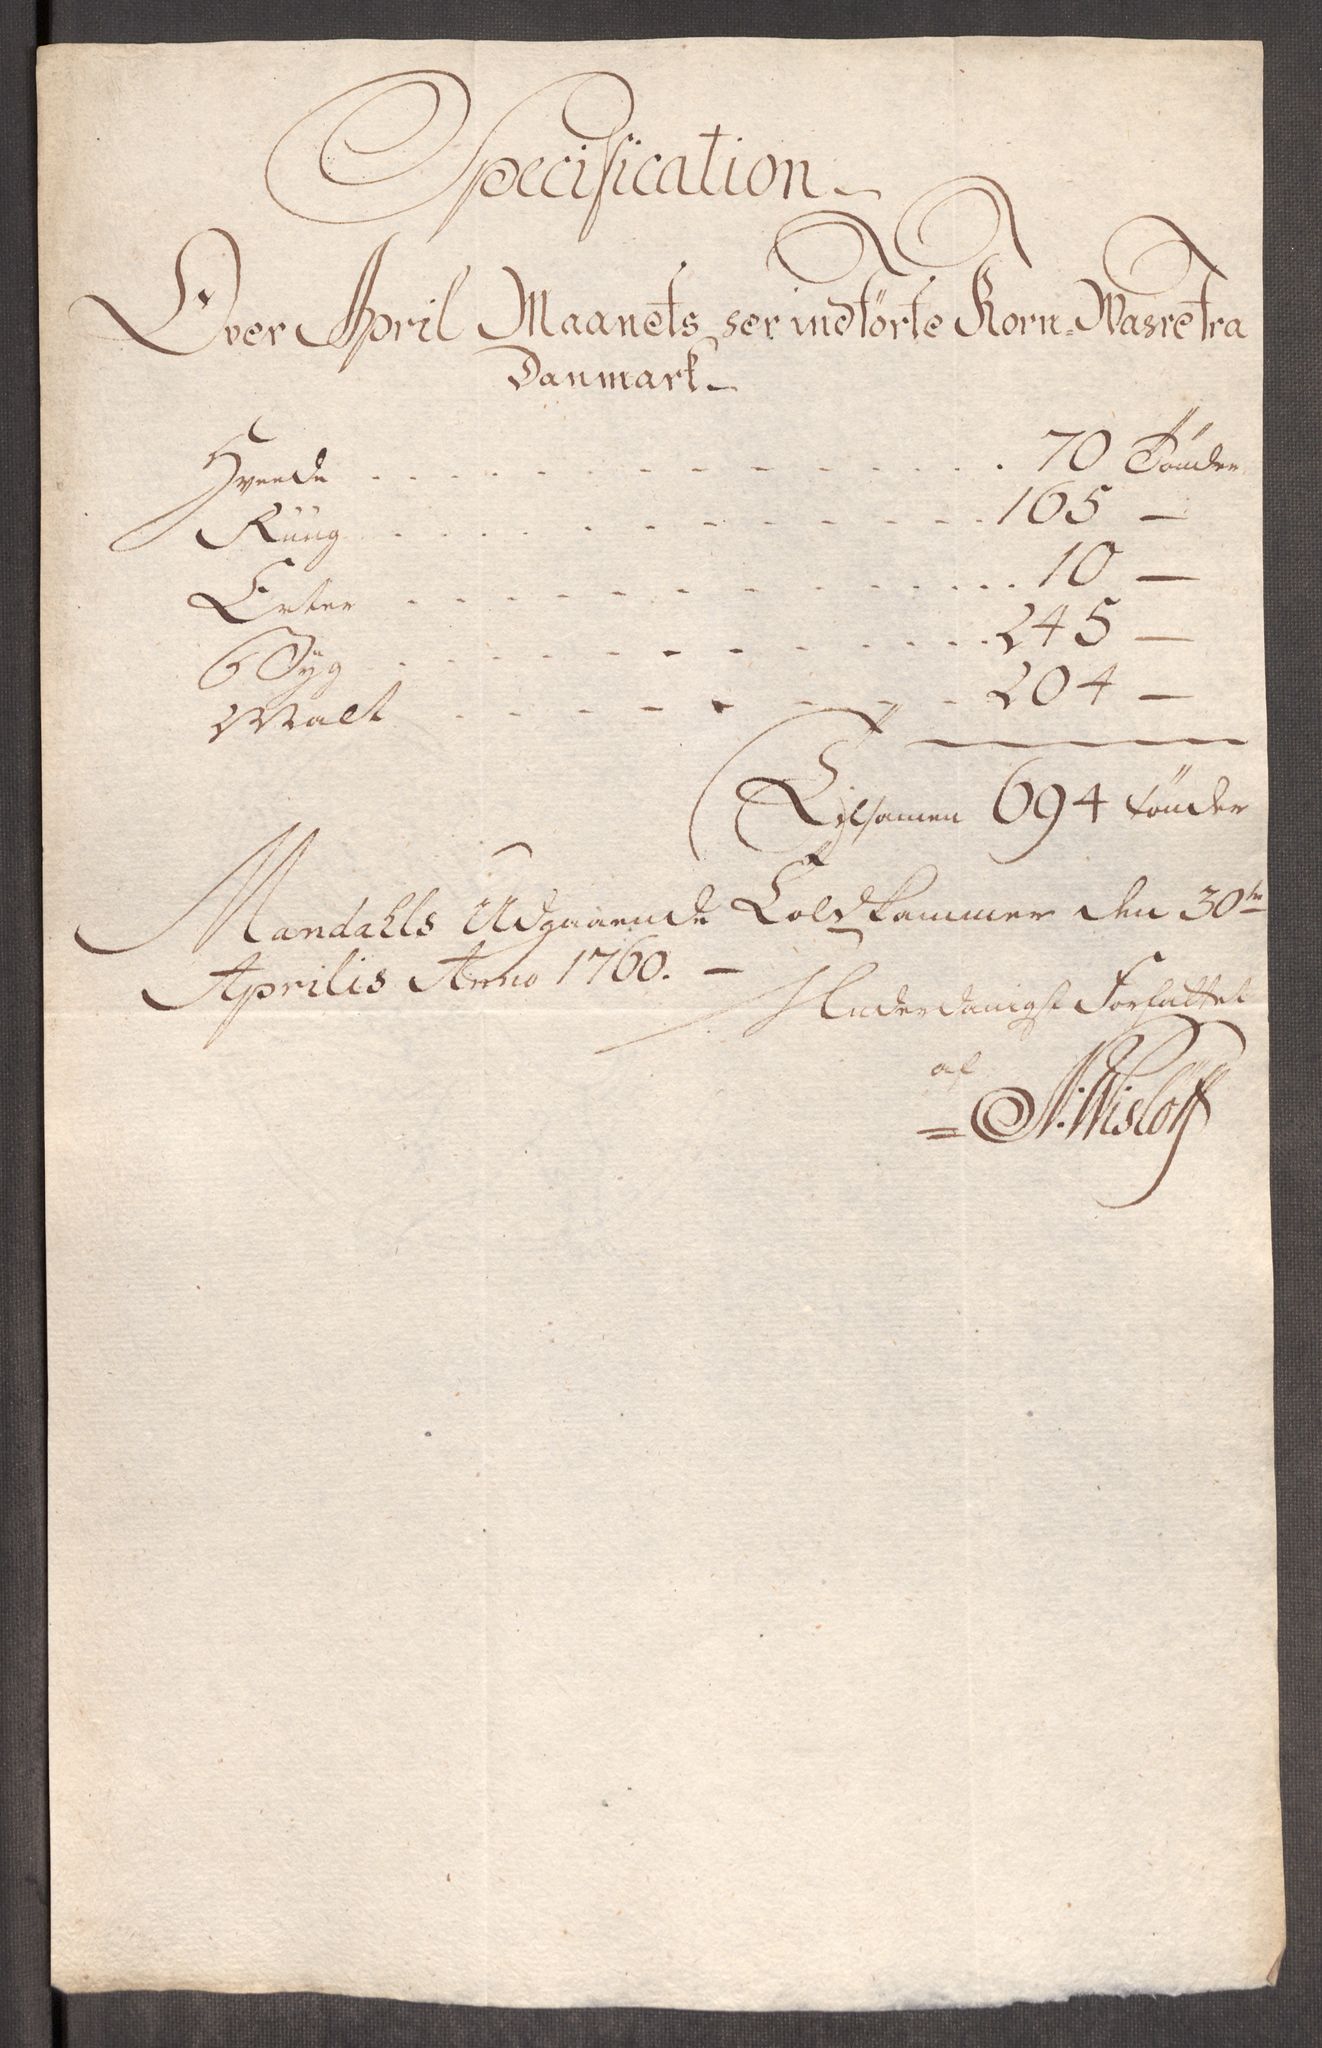 Specification
Over April Maanets her indförte Korn-Wahre fra
Danmark
Hveede . . . . . . . . . . . 70 Tönder
Rüüg . . . . . . . . . . . 165 —
Erter . . . . . . . . . . . 10 —
Byg . . . . . . . . . . . 245 —
Malt . . . . . . . . . . . 204 —
Tilsamen 694 tönder
Mandahls Udgaaende Toldkammer den 30te
Aprilis Anno 1760. —
Underdanigst Forfattet
af
= N: Wislöff